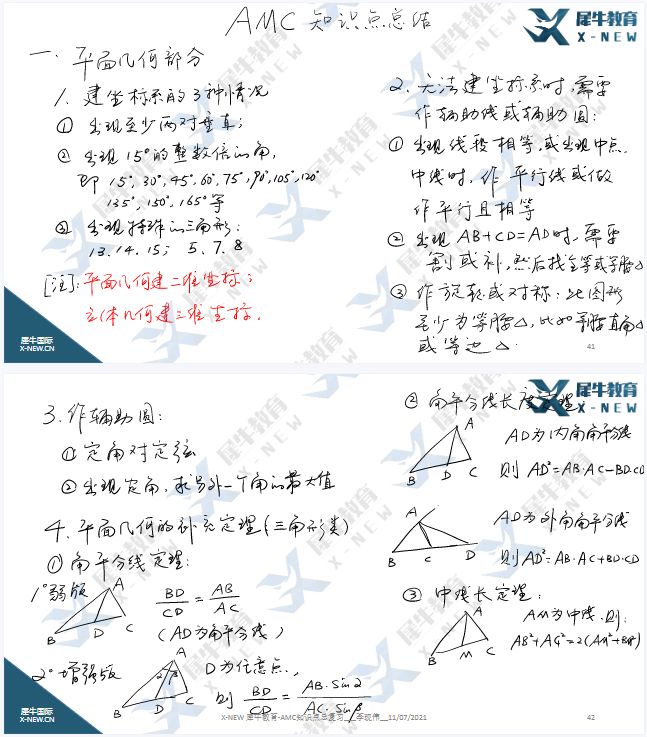 AMC 知识点总结
犀牛教育
X-NEW
一. 平面几何部分
1. 建坐标系的3种情况
① 出现至少两对垂直;
② 出现15°的整数倍的角,
即 15°, 30°, 45°, 60°, 75°, 90°, 105°, 120°
135°, 150°, 165° 等
③ 出现特殊的三角形:
13. 14. 15; 5. 7. 8
[注]: 平面几何建二维坐标;
立体几何建三维坐标.
2. 无法建坐标系时, 需要
作辅助线或辅助圆:
① 出现线段相等, 或出现中点.
中线时, 作平行线或做
作平行且相等
② 出现 AB+CD=AD时, 需要
割或补, 然后找全等或等腰△
③ 作旋转或对称: 此图形
至少为等腰△, 比如等腰直角△
或等边△.
犀牛国际
X-NEW.CN
41
3. 作辅助圆:
① 定角对定弦
② 出现定角, 求另外一个角的最大值
4. 平面几何的补充定理(三角形类)
① 角平分线定理:
1° 弱版
A
B
D
C
BD/CD = AB/AC
(AD为角平分线)
2° 增强版
A
α
β
B
D
C
D为任意点,
则 BD/CD = AB·Sinα/AC·Sinβ
犀牛教育
X-NEW
② 角平分线长度定理:
A
B
D
C
AD为内角角平分线
则 AD²=AB·AC-BD·CD
A
B
C
D
AD为外角角平分线
则AD²=-AB·AC+BD·CD
③ 中线长定理:
A
B
M
C
AM为中线. 则:
AB²+AC²=2(AM²+BM²)
犀牛国际
X-NEW.CN
X-NEW 犀牛教育-AMC知识点总复习__李现伟__11/07/2021
42